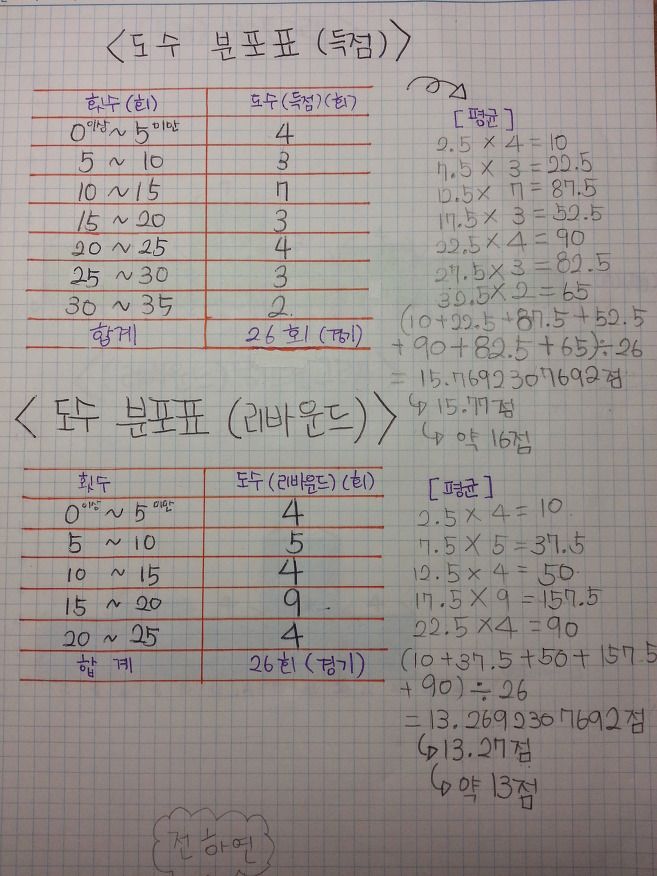 <도수 분포표 (득점)>
횟수 (회) 도수 (득점) (회)
0이상 ~ 5미만 4
5 ~ 10 3
10 ~ 15 7
15 ~ 20 3
20 ~ 25 4
25 ~ 30 3
30 ~ 35 2
합계 26회 (경기)
[평균]
2.5 × 4 = 10
7.5 × 3 = 22.5
12.5 × 7 = 87.5
17.5 × 3 = 52.5
22.5 × 4 = 90
27.5 × 3 = 82.5
32.5 × 2 = 65
(10+22.5+87.5+52.5
+90+82.5+65)÷26
= 15.7692307692점
↳ 15.77점
↳ 약 16점
<도수 분포표 (리바운드)>
횟수 도수 (리바운드) (회)
0이상 ~ 5미만 4
5 ~ 10 5
10 ~ 15 4
15 ~ 20 9
20 ~ 25 4
합계 26회 (경기)
[평균]
2.5 × 4 = 10
7.5 × 5 = 37.5
12.5 × 4 = 50
17.5 × 9 = 157.5
22.5 × 4 = 90
(10+37.5+50+157.5
+90) ÷ 26
= 13.2692307692점
↳ 13.27점
↳ 약 13점
전하연